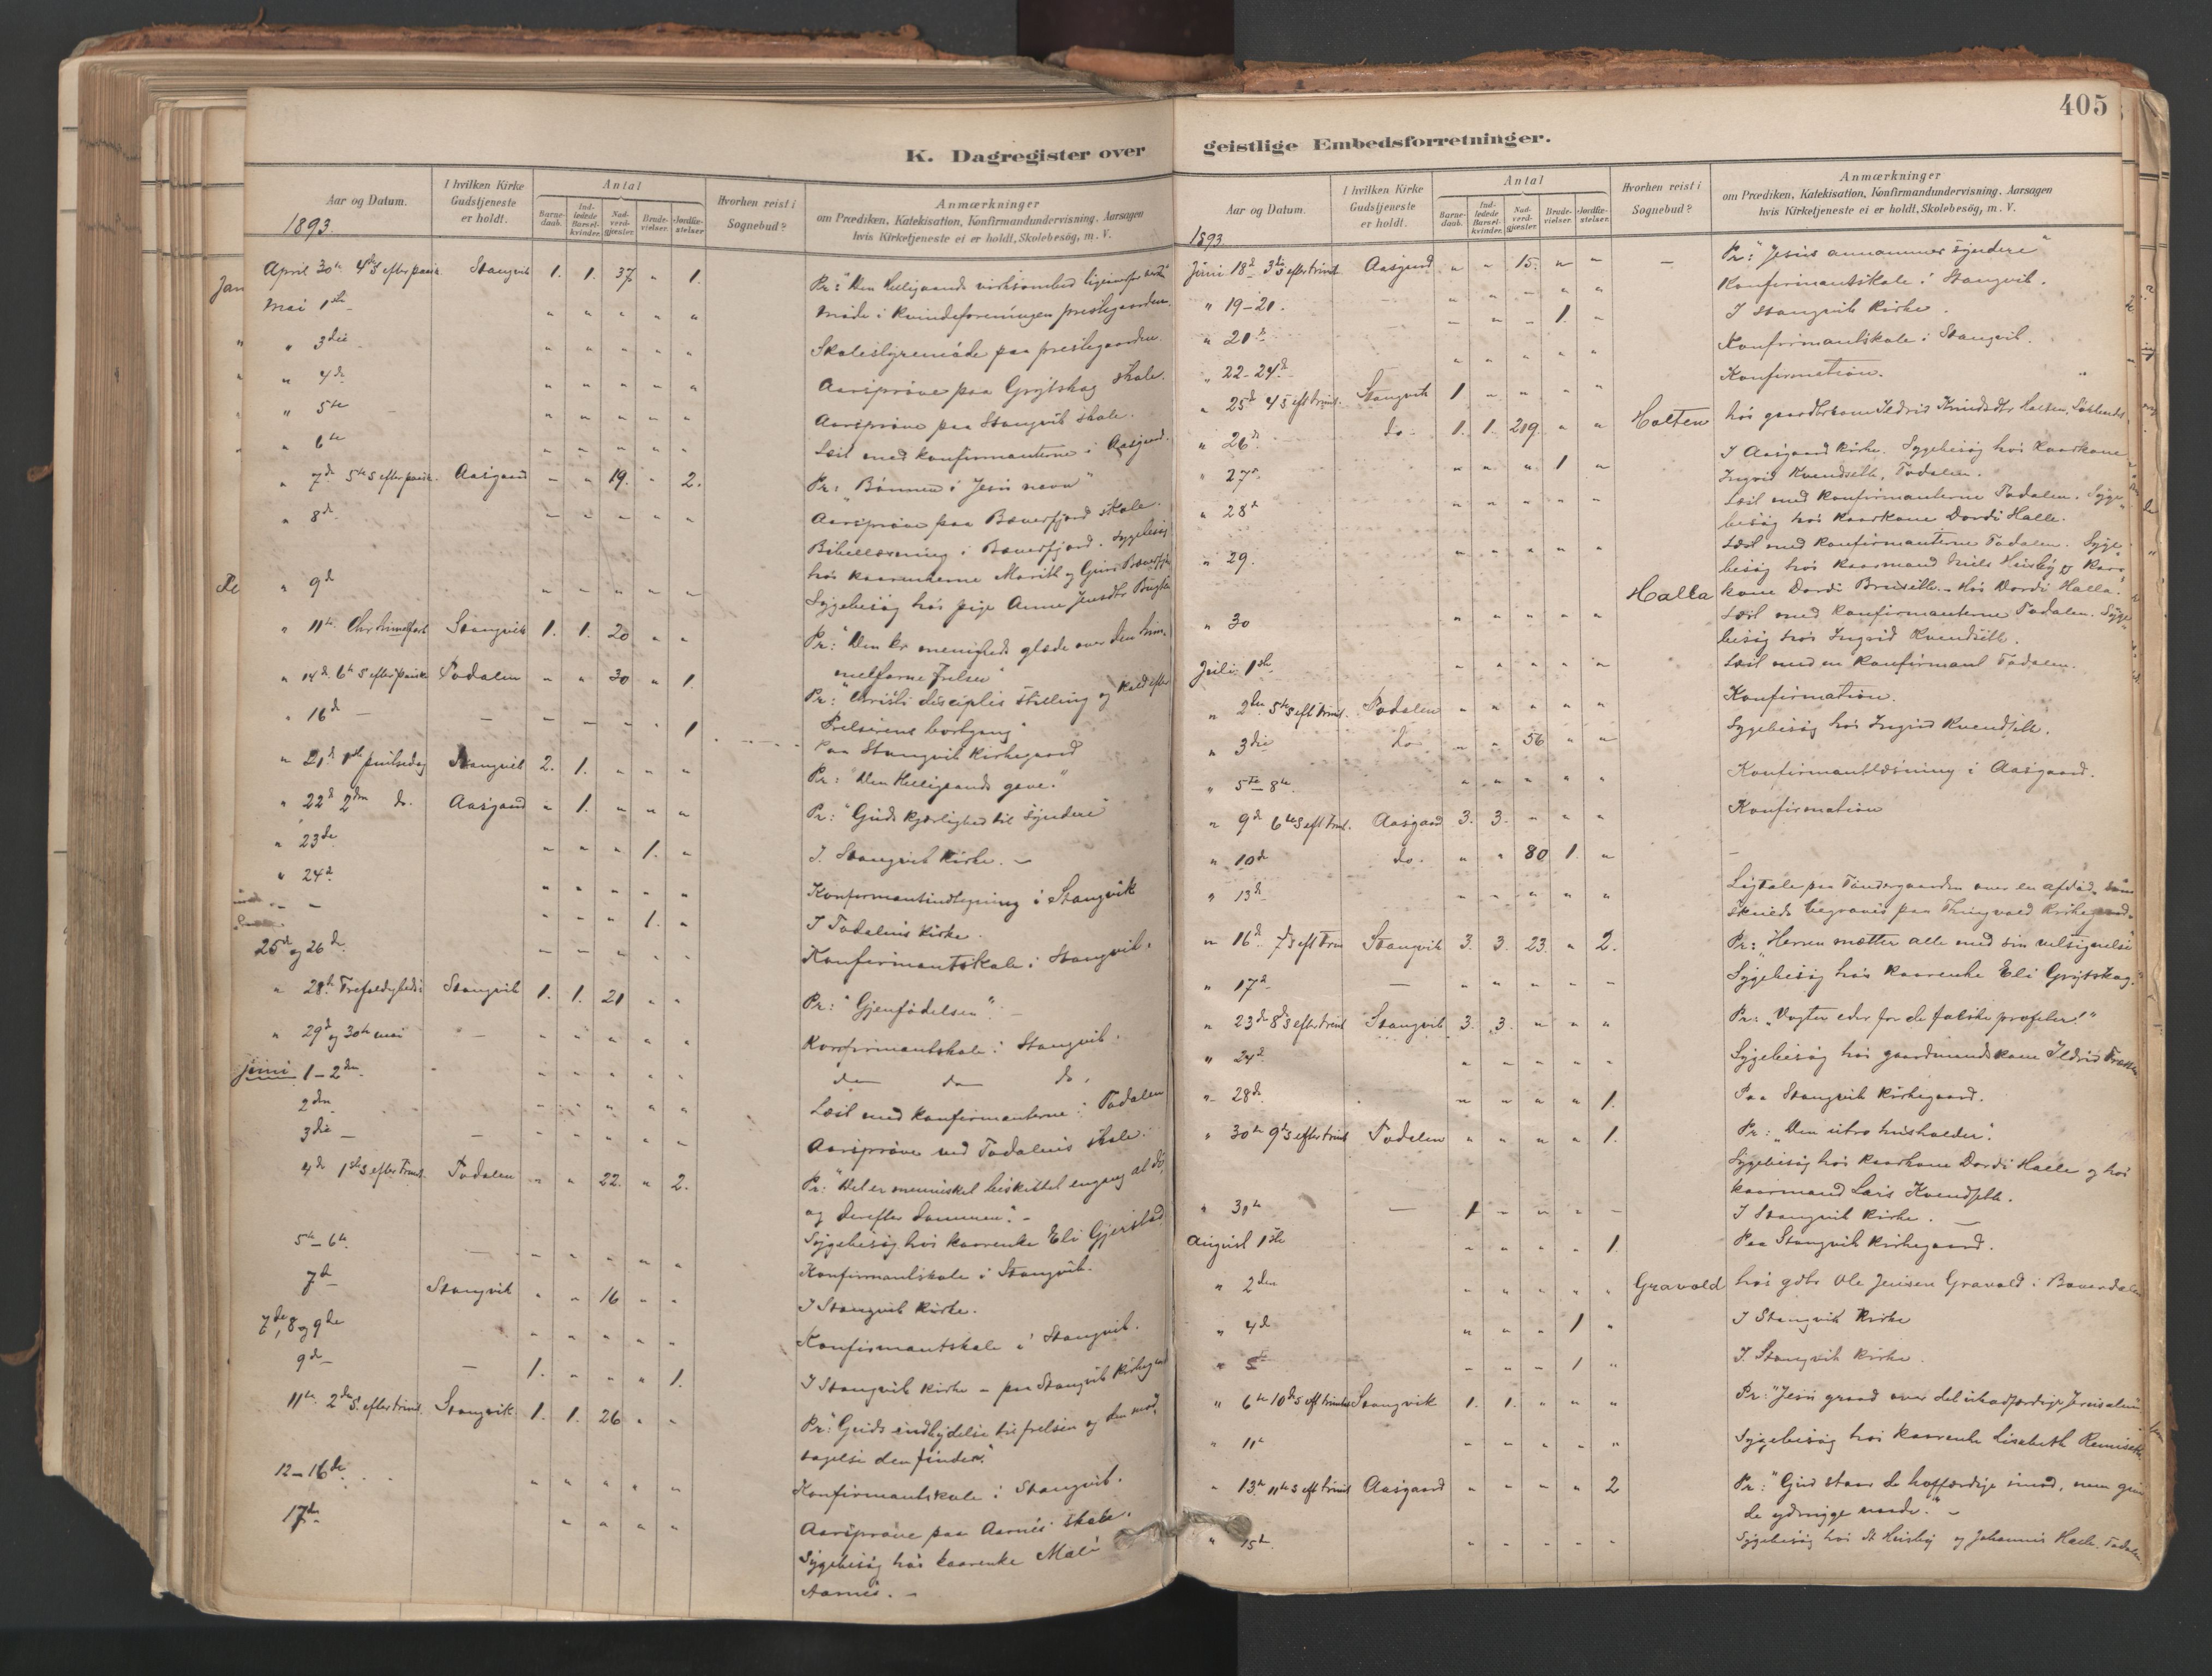 405
K. Dagregister over
Aar og Datum.
I hvilken Kirke Gudstjeneste er holdt.
Antal
Barne-daab.
Ind-ledede Barsel-kvinder.
Nad-verd-gjæster.
Brude-vielser.
Jordfæ-stelser.
Hvorhen reist i Sognebud?
Anmærkninger
om Prædiken, Katekisation, Konfirmandundervisning, Aarsagen
hvis Kirketjeneste ei er holdt, Skolebesøg, m. V.
1893.
April 30te 4de S efter paaske Stangvik 1. 1. 37. " 1. Pr: "Den Helligaands virksomhed
Mai 1ste Møde i kvindeforeningen prestegaarden.
" 3die Skolestyremøde paa prestegaarden.
" 4de Aarsprøve paa Grytskog skole.
" 5te Aarsprøve paa Stangvik skole.
" 6te Læst med konfirmanterne i Aasgaard.
" 7de 5te S efter paaske Aasgaard " " 19. " 2. Pr: "Bønnen i Jesu navn"
" 8de Aarsprøve paa Bæverfjord skole.
Bibellæsning i Bæverfjord. Sygebesøg
hos kaarenkerne Marit og Guri Bæverfjord
" 9de Sygebesøg hos pige Anne Jensdtr
" 11te Chr himmelfart Stangvik 1. 1. 20 " " Pr: "Den kr menigheds glæde over den him-
melfarne frelser"
" 14de 6te S efter paaske Todalen " " 30 " 1. Pr: "Christi disciples stilling og kald efter
Frelserens bortgang"
" 16de 1 Paa Stangvik kirkegaard
" 21de 1ste pintsedag Stangvik 2. 1. " " " Pr: "Den Helligaands gave."
" 22de 2den do. Aasgaard " 1. " " " Pr: "Guds kjærlighed til syndere"
" 23de " " " 1. " I Stangvik kirke.
" 24de Konfirmantindtegning i Stangvik
" " " 1. " I Todalens kirke.
25de og 26de Konfirmantskole i Stangvik.
" 28de Trefoldigheds Stangvik 1. 1. 21 " " Pr: "Gjenfødelsen".
" 29de og 30te mai Konfirmantskole i Stangvik.
juni 1-2den do do do.
2den Læst med konfirmanterne i Todalen
3die Aarsprøve ved Todalens skole.
4de 1ste S efter Trinit. Todalen " " 22. " 2. Pr: "Det er mennesket beskikket engang at dø,
og derefter dommen".
Sygebesøg hos kaarenke Eli Gjerstad
5te-6te Konfirmantskole i Stangvik.
7de Stangvik " " 16 " " I Stangvik kirke.
7de, 8 og 9de Konfirmantskole i Stangvik.
9de 1. " " " 1. I Stangvik kirke - paa Stangvik kirkegaard
11te 2den S. efter trinit. Stangvik 1. 1. 26 " " Pr: "Guds indbydelse til frelsen og den mod-
tagelse den finder."
12-16de Konfirmantskole i Stangvik.
17de Aarsprøve paa Aarnes skole.
Sygebesøg hos kaarenke Mali
Aarnes.
geistlige Embedsforretninger.
Aar og Datum.
I hvilken Kirke Gudstjeneste er holdt.
Antal
Barne-daab.
Ind-ledede Barsel-kvinder.
Nad-verd-gjæster.
Brude-vielser.
Jordfæ-stelser.
Hvorhen reist i Sognebud?
Anmærkninger
om Prædiken, Katekisation, Konfirmandundervisning, Aarsagen
hvis Kirketjeneste ei er holdt, Skolebesøg, m. V.
1893
Juni 18de 3die S efter trinit Aasgaard " " 15. " " Pr: "Jesus annammer syndere"
" 19-21. Konfirmantskole i Stangvik.
" 21de " " " 1. " I Stangvik kirke.
" 22-24de Konfirmantskole i Stangvik.
" 25de 4 S eft trinit. Stangvik 1 " " " " Konfirmation.
" 26de do. 1. 1. 219. " " Halten hos gaardbrkone Ildrid Knudsdtr Halten,
" 27de " " " 1 " I Aasgaard kirke. Sygebesøg hos kaarkone
Ingrid Kvendseth, Todalen.
" 28de Læst med konfirmanterne Todalen. Syge-
besøg hos kaarkone Dordi Halle.
" 29. Læst med konfirmanterne Todalen. Syge-
besøg hos kaarmand Niels Husby og kaar-
Halla kone Dordi Bruseth. - Hos Dordi Halla.
" 30 Læst med konfirmanterne Todalen. Syge-
besøg hos Ingrid Kvendseth.
Juli 1ste Læst med en konfirmant Todalen.
" 2den 5te S eft trinit. Todalen Konfirmation.
" 3die do " " 56 " " Sygebesøg hos Ingrid Kvendseth.
" 5te-8de Konfirmantlæsning i Aasgaard.
" 9de 6te S eft trinit. Aasgaard 3. 3. " " " Konfirmation
" 10de do. " " 80 1. "
" 13de Ligtale paa Tøndergaarden over en afdød, som
skulde begraves paa Thingvold kirkegaard.
" 16de 7 S eft Trin Stangvik 3. 3. 23. " 2. Pr: "Herren mætter alle med sin velsignelse
" 17de Sygebesøg hos kaarenke Eli Grytskog.
" 23de 8de S efter trinit Stangvik 3. 3. " " " Pr: "Vogter eder for de falske profeter!"
" 24de Sygebesøg hos gaardmandskone Ildrid
" 28de " " " " 1. Paa Stangvik kirkegaard.
" 30te 9de S efter trinit Todalen " " " " 1. Pr: "Den utro husholder".
Sygebesøg hos kaarkone Dordi Halle og hos
kaarmand Lars Kvendseth.
" 30te 1 " " " " I Stangvik kirke.
August 1ste " " " " 1. Paa Stangvik kirkegaard.
" 2den Gravold hos gdbr Ole Jensen Gravold i Bæverdalen
" 4de " " " 1 " I Stangvik kirke
" 5te " " " 1 " I. Stangvik kirke.
" 6te 10de S eft trinit Stangvik 1. 1. " " " Pr: "Jesu graad over det ubodfærdige Jerusalem"
" 11te Sygebesøg hos kaarenke Lisabeth
" 13de 11te S eft trinit Aasgaard " " " " 2 Pr: "Gud staar de hoffærdige imod, men giver
de ydmyge naade."
" 15de Sygebesøg hos St Husby og Johannes Halle. Todalen.